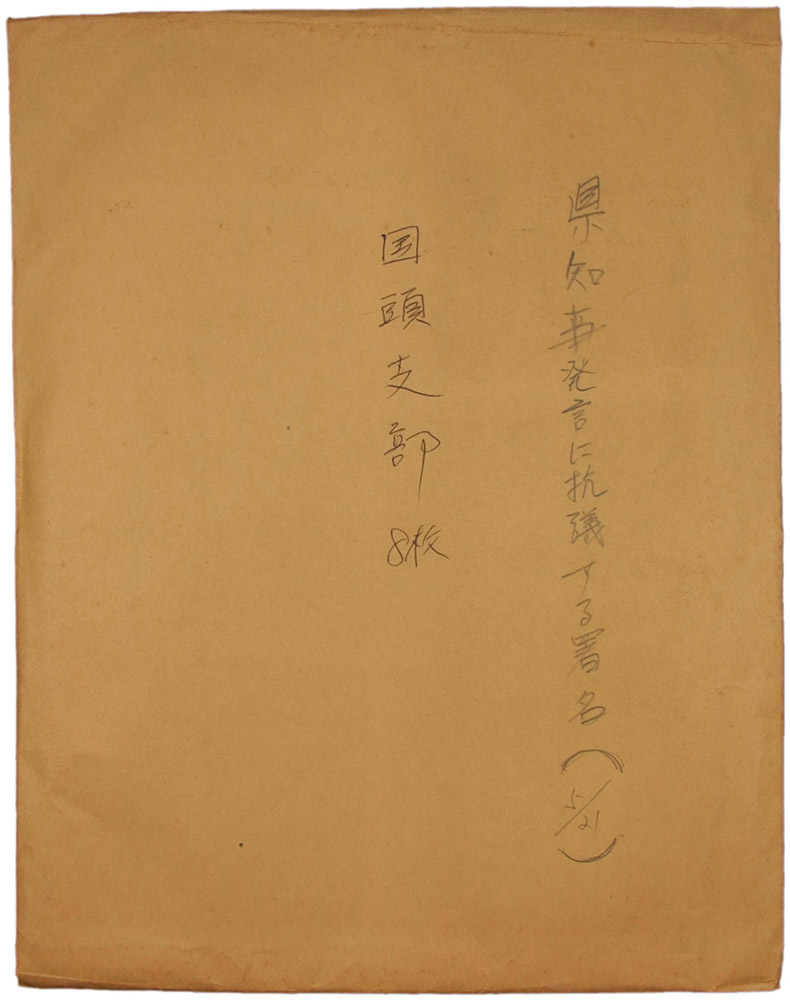 県知事発言に抗議する署名(5/21)
国頭支部 8枚